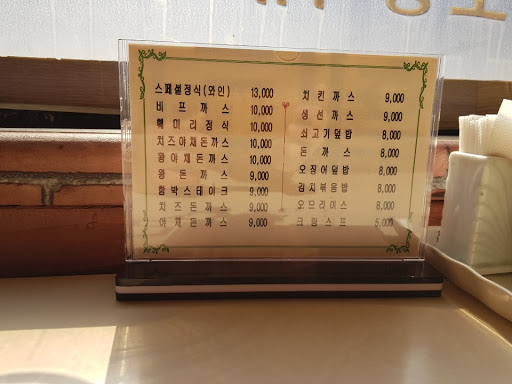 스페셜정식(와인) 13,000
비프까스 10,000
핵미리정식 10,000
치즈야채돈까스 10,000
왕야채돈까스 10,000
왕돈까스 9,000
함박스테이크 9,000
치즈돈까스 9,000
야채돈까스 9,000
치킨까스 9,000
생선까스 9,000
쇠고기덮밥 8,000
돈까스 8,000
오징어덮밥 8,000
김치볶음밥 8,000
오므라이스 8,000
크림스프 5,000